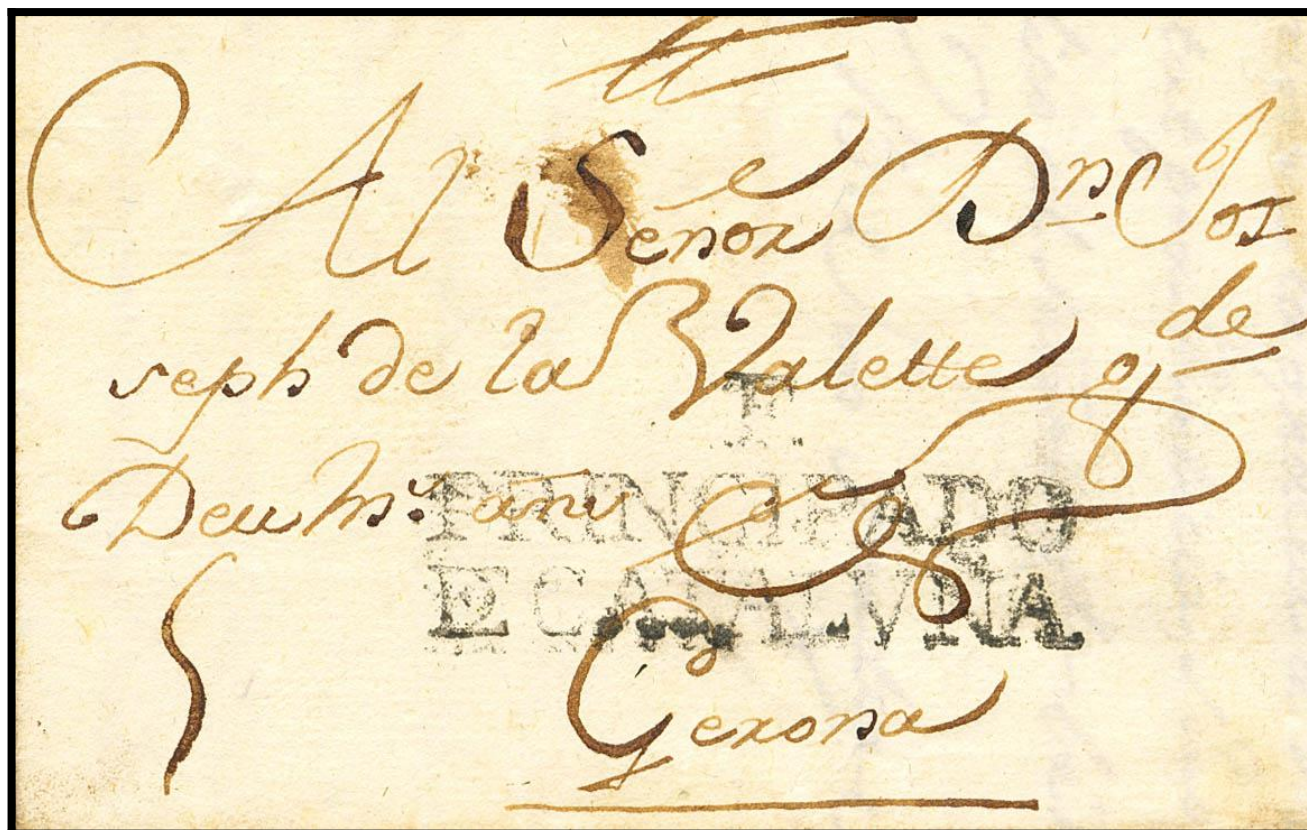 Al Señor Dn Jo
seph de la Valette gde
Deu ms. ans
F.
PRINCIPADO
E CATALVÑA
Gerona